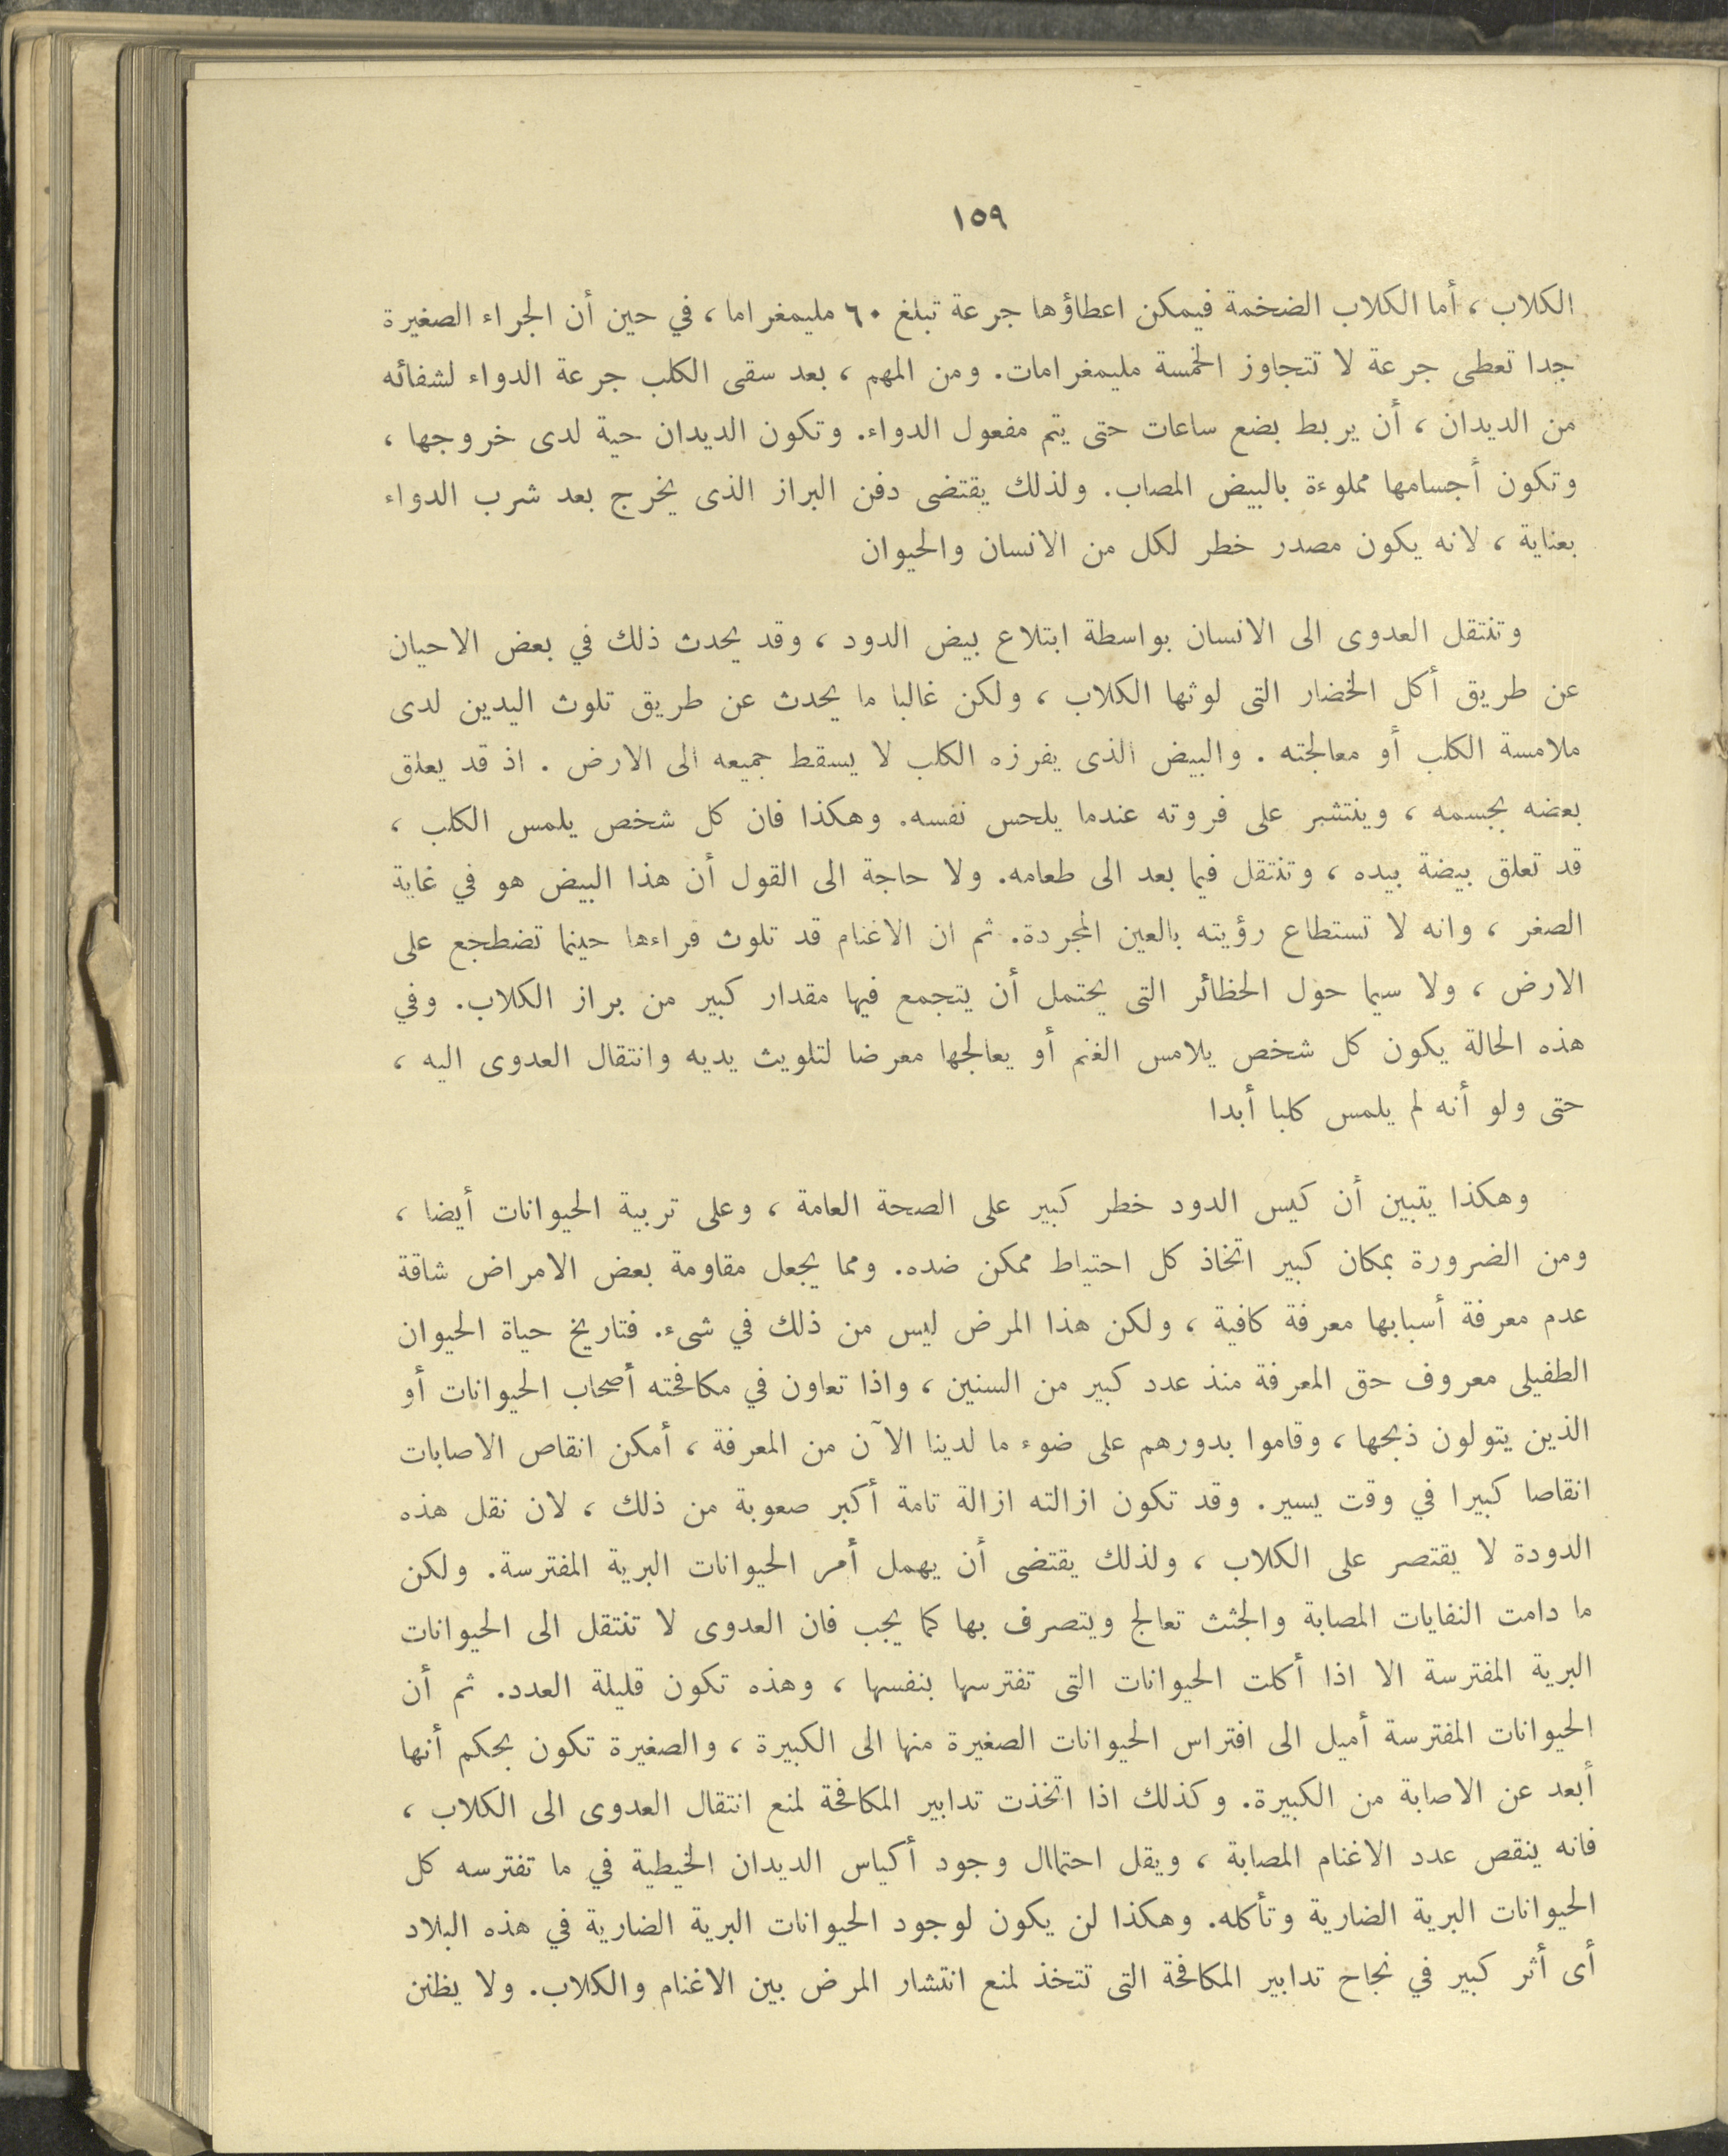 ١٥٩
الكلاب ، أما الكلاب الضخمة فيمكن اعطاؤها جرعة تبلغ ٦٠ مليمغراما ، في حين أن الجراء الصغيرة
جدا تعطى جرعة لا تتجاوز الخمسة مليمغرامات. ومن المهم ، بعد سقى الكلب جرعة الدواء لشفائه
من الديدان ، أن يربط بضع ساعات حتى يتم مفعول الدواء. وتكون الديدان حية لدى خروجها ،
وتكون أجسامها مملوءة بالبيض المصاب. ولذلك يقتضى دفن البراز الذى يخرج بعد شرب الدواء
بعناية ، لانه يكون مصدر خطر لكل من الانسان والحيوان
وتنتقل العدوى الى الانسان بواسطة ابتلاع بيض الدود ، وقد يحدث ذلك في بعض الاحيان
عن طريق أكل الخضار التى لوثها الكلاب ، ولكن غالبا ما يحدث عن طريق تلوث اليدين لدى
ملامسة الكلب أو معالجته . والبيض الذى يفرزه الكلب لا يسقط جميعه الى الارض . اذ قد يعلق
بعضه بجسمه ، وينتشبر على فروته عندما يلحس نفسه. وهكذا فان كل شخص يلمس الكلب ،
قد تعلق بيضة بيده ، وتنتقل فيما بعد الى طعامه. ولا حاجة الى القول أن هذا البيض هو في غاية
الصغر ، وانه لا تستطاع رؤيته بالعين المجردة. ثم ان الاغنام قد تلوث فراءها حينما تضطجع على
الارض ، ولا سيما حول الحظائر التى يحتمل أن يتجمع فيها مقدار كبير من براز الكلاب. وفي
هذه الحالة يكون كل شخص يلامس الغنم أو يعالجها معرضا لتلويث يديه وانتقال العدوى اليه ،
حتى ولو أنه لم يلمس كلبا أبدا
وهكذا يتبين أن كيس الدود خطر كبير على الصحة العامة ، وعلى تربية الحيوانات أيضا ،
ومن الضرورة بمكان كبير اتخاذ كل احتياط ممكن ضده. ومما يجعل مقاومة بعض الامراض شاقة
عدم معرفة أسبابها معرفة كافية ، ولكن هذا المرض ليس من ذلك في شىء. فتاريخ حياة الحيوان
الطفيلى معروف حق المعرفة منذ عدد كبير من السنين ، واذا تعاون في مكافحته أصحاب الحيوانات أو
الذين يتولون ذبحها ، وقاموا بدورهم على ضوء ما لدينا الآن من المعرفة ، أمكن انقاص الاصابات
انقاصا كبيرا في وقت يسير. وقد تكون ازالته ازالة تامة أكبر صعوبة من ذلك ، لان نقل هذه
الدودة لا يقتصر على الكلاب ، ولذلك يقتضى أن يهمل أمر الحيوانات البرية المفترسة. ولكن
ما دامت النفايات المصابة والجثث تعالج ويتصرف بها كما يجب فان العدوى لا تنتقل الى الحيوانات
البرية المفترسة الا اذا أكلت الحيوانات التى تفترسها بنفسها ، وهذه تكون قليلة العدد. ثم أن
الحيوانات المفترسة أميل الى افتراس الحيوانات الصغيرة منها الى الكبيرة ، والصغيرة تكون بحكم أنها
أبعد عن الاصابة من الكبيرة. وكذلك اذا اتخذت تدابير المكافحة لمنع انتقال العدوى الى الكلاب ،
فانه ينقص عدد الاغنام المصابة ، ويقل احتمال وجود أكياس الديدان الخيطية في ما تفترسه كل
الحيوانات البرية الضارية وتأكله. وهكذا لن يكون لوجود الحيوانات البرية الضارية في هذه البلاد
أى أثر كبير في نجاح تدابير المكافحة التى تتخذ لمنع انتشار المرض بين الاغنام والكلاب. ولا يظنن